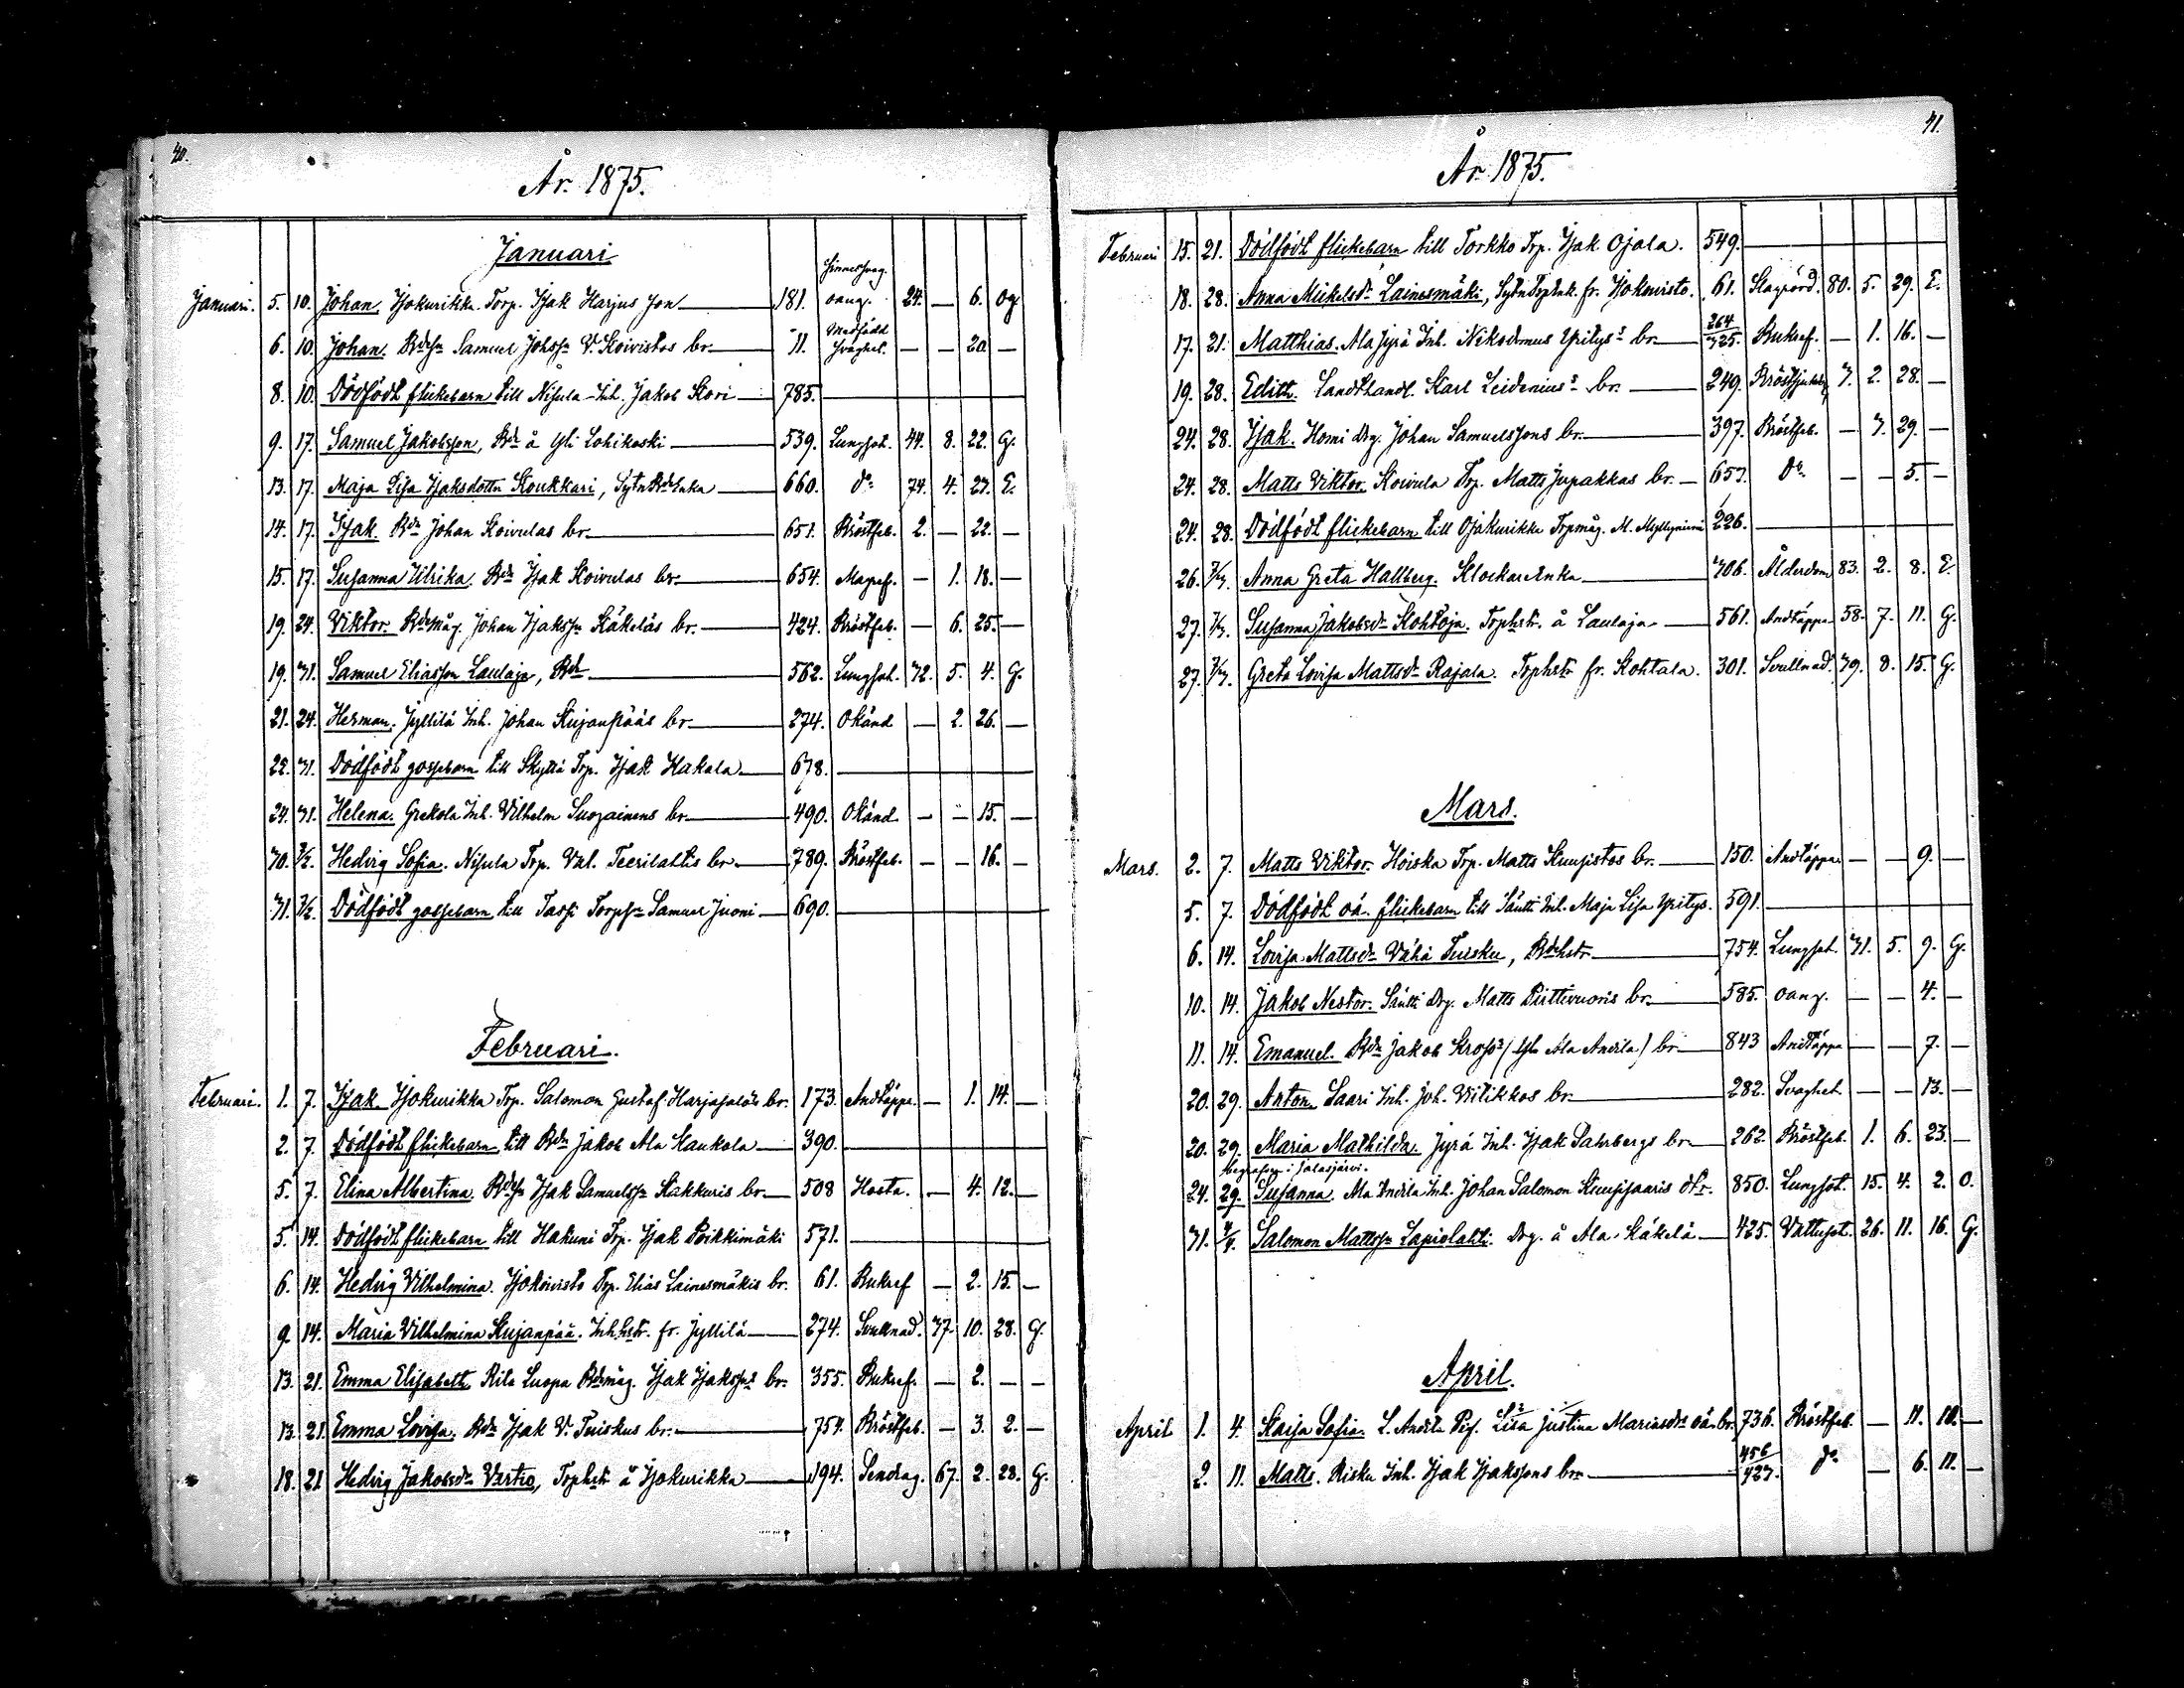 40.
År 1875.
Januari
Januari. 5. 10. Johan. Ijokurikka Torp. Isak Harjus son — 181. Sinnessvag. oang. 24. — 6. Og
6. 10. Johan. Bdesn Samuel Johssn V. Koivistos br. — 11. Medfödd svaghet. — — 20. —
8. 10. Dödfödt flickebarn till Nisula Inh. Jakob Kori — 785. —
9. 17. Samuel Jakobsson, Bde å Yli Lohikoski — 539. Lungsot. 44. 8. 22. G.
13. 17. Maja Lisa Isaksdotter Koukkari, SytnBdeEnka — 660. do 74. 4. 27. E.
14. 17. Isak. Bdn Johan Koivulas br. — 651. Bröstfeb. 2. — 22. —
15. 17. Susanna Ulrika. Bdn Isak Koivulas br. — 654. Magref. — 1. 18. —
19. 24. Viktor. Bdemåg. Johan Isakssn Käkeläs br. — 424. Bröstfeb. — 6. 25. —
19. 31. Samuel Eliasson Laulaja, Bde — 562. Lungsot. 72. 5. 4. G.
21. 24. Herman. Jyllilä Inh. Johan Kujanpääs br. — 274. Okänd — 2. 26. —
22. 31. Dödfödt gossebarn till Skyttä Trp. Isak Hakala — 678. —
24. 31. Helena. Grekola Inh. Vilhelm Suozainens br. — 490. Okänd. — — 15. —
30. 7/2. Hedvig Sofia. Nisula Trp. Val. Teerilahtis br — 789. Bröstfeb. — — 16. —
31. 7/2. Dödfödt gossebarn till Tassi Torpsn Samuel Juoni — 690. —
Februari.
Februari. 1. 7. Isak Ijokurikka Trp. Salomon Gustaf Harjasalos br. 173. Andtäppa. — 1. 14. —
2. 7. Dödfödt flickebarn till Bdn Jakob Ala Kaukola — 390. —
5. 7. Elina Albertina. Bdesn Isak Samuelssn Kukkuris br. — 508 Hosta. — 4. 12. —
5. 14. Dödfödt flickebarn till Hakuni Trp. Isak Poikkimäki 571. —
6. 14. Hedvig Vilhelmina. Ijokoivisto Trp. Elias Lainesmäkis br. 61. Bukref — 2. 15. —
9. 14. Maria Vilhelmina Kujanpää. Inhhstr. fr. Jyllilä — 274. Svullnad. 37. 10. 28. G.
13. 21. Emma Elisabeth. Rila Luopa Bdemåg. Isak Isakssns br. 355. Bukref. — 2. — —
13. 21. Emma Lovisa. Bdn Isak V. Tuiskus br. — 754. Bröstfeb. — 3. 2. —
18. 21. Hedvig Jakobsdr Vartio, Trphstr å Ijokurikka — 194. Sendrag. 67. 2. 28. G.
41.
År 1875.
Februari 15. 21. Dödfödt flickebarn till Torkko Trp. Isak Ojala. 549. —
18. 28. Anna Mickelsdr Lainesmäki, SytnTrpEnk. fr. Ijokoivisto. 61. Slagrörd. 80. 5. 29. E.
17. 21. Matthias. Ala Jyrä Inh. Nikodemus Yritys's br. — 264/325. Bukref. — 1. 16. —
19. 28. Edith. Landthandl. Karl Leidenius's br. — 249. 3. 2. 28. —
24. 28. Isak. Homi Drg. Johan Samuelssons br. — 397. Bröstfeb. — 3. 29. —
24. 28. Matts Viktor. Koivula Trp. Matts Jupakkas br. — 657. do — — 5. —
24. 28. Dödfödt flickebarn till Ojakurikka Trpmåg. M. Myllyniemi 226. —
26. 7/3. Anna Greta Hallberg. KlockareEnka — 706. Ålderdom 83. 2. 8. E.
27. 7/3. Susanna Jakobsdr Kohtoja. Trphstr. å Laulaja — 561. Andtäppa 58. 7. 11. G.
27. 7/3. Greta Lovisa Mattsdr Rajala. Trphstr fr. Kohtala. 301. Svullnad. 39. 8. 15. G.
Mars.
Mars. 2. 7. Matts Viktor. Hoiska Trp. Matts Kuusistos br. — 150. Andtäppa — — 9. —
5. 7. Dödfödt oä. flickebarn till Säntti Inh. Maja Lisa Yritys. 591. —
6. 14. Lovisa Mattsdr Vähä Tuisku, Bdehstr — 754. Lungsot. 31. 5. 9. G.
10. 14. Jakob Nestor. Säntti Drg. Matts Pirttivuoris br. — 585. oang. — — 4. —
11. 14. Emanuel. Bdn Jakob Kross's (Yli Ala Anrila) br — 843 Andtäppa — — 7. —
20. 29. Anton. Saari Inh. Joh. Viitikkos br. — 282. Svaghet — — 13. —
20. 29. Maria Mathilda. Jyrä Inh. Isak Sahrbergs br — 262. Bröstfeb. 1. 6. 23. —
begrafven i Jalasjärvi.
24. 29. Susanna. Ala Anrila Inh. Johan Salomon Kuusisaaris dtr. 850. Lungsot. 15. 4. 2. O.
31. 4/4. Salomon Mattssn Lapiolahti. Drg. å Ala Käkelä — 425. Vattusot. 26. 11. 16. G.
April.
April 1. 4. Kaisa Sofia. L. Anrila Pig. Lisa Justina Mariasdrs oä. br. 736. Bröstfeb. — 11. 10. —
2. 11. Matts. Risku Inh. Isak Isakssons br. — 456/427. do — 6. 11. —